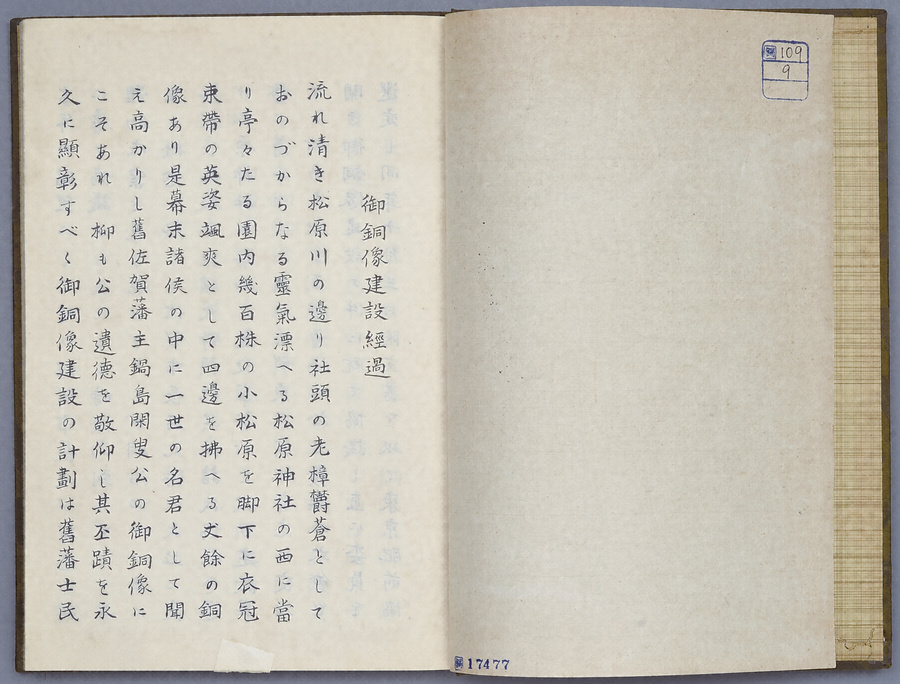 御銅像建設經過
流れ清き松原川の邊り社頭の老樟欝蒼として
おのづからなる靈氣漂へる松原神社の西に當
り亭々たる園内幾百株の小松原を脚下に衣冠
束帶の英姿颯爽として四邊を拂へる丈餘の銅
像あり是幕末諸侯の中に一世の名君として聞
え高かりし舊佐賀藩主鍋島閑叟公の御銅像に
こそあれ 抑も公の遺德を敬仰し其丕蹟を永
久に顯彰すべく御銅像建設の計劃は舊藩士民
109
9
17477